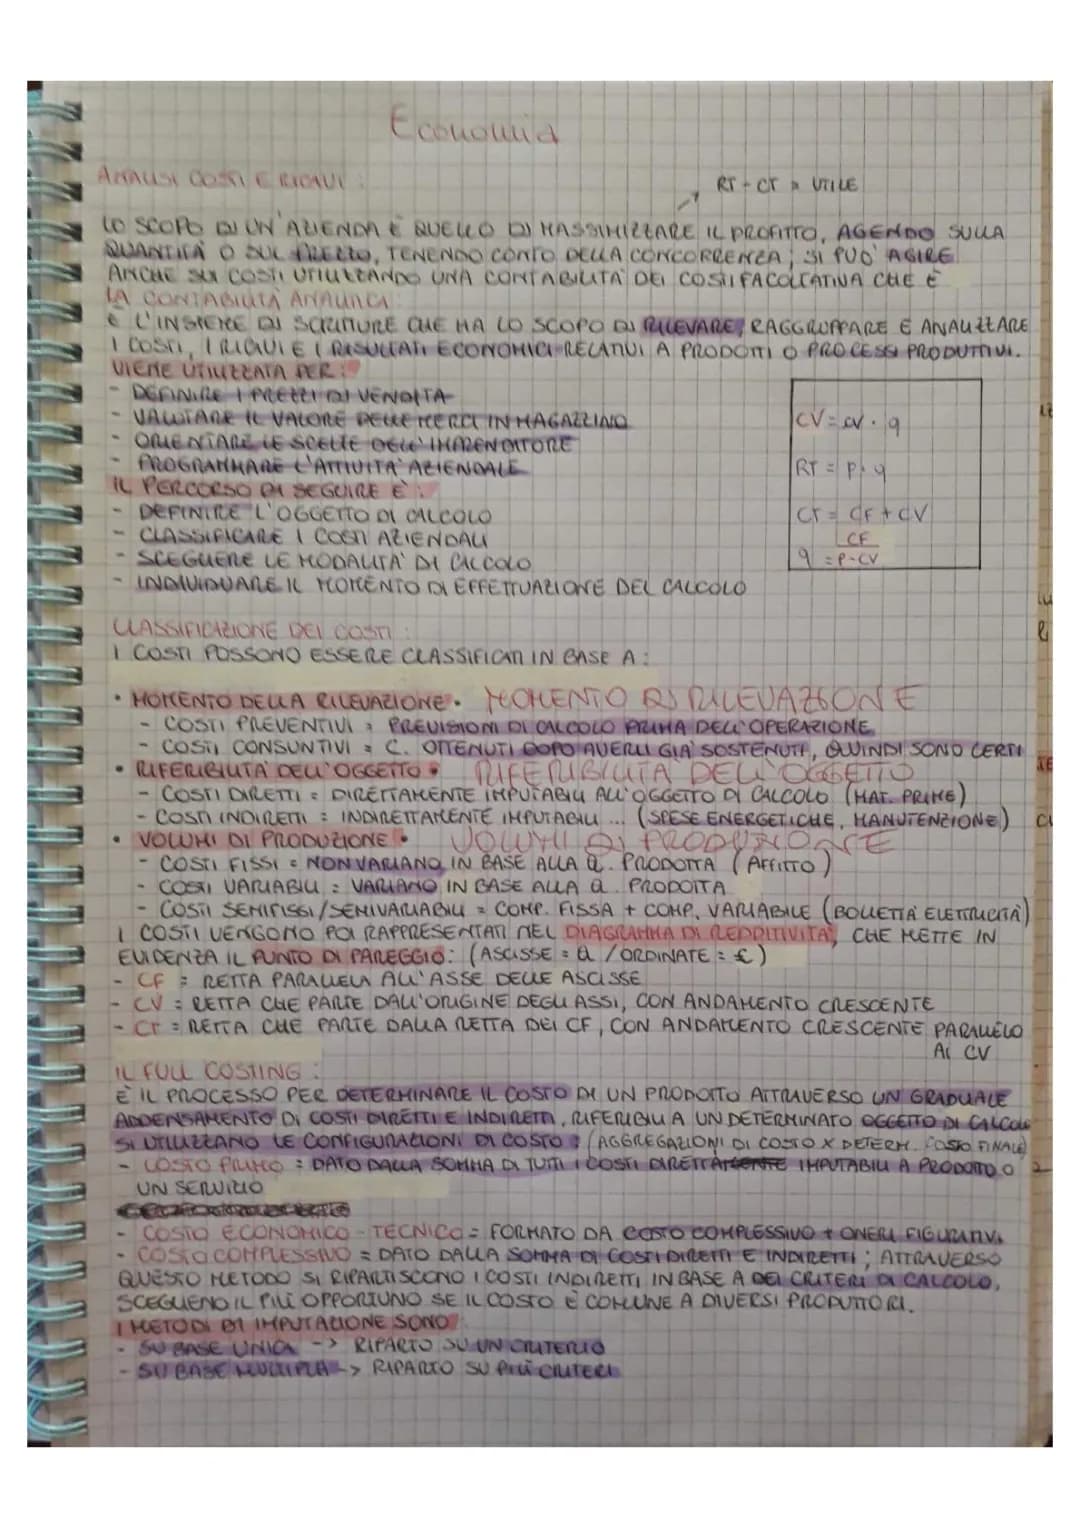 Economia
ANALISI COSTI E RICAVI :
RT - CT = UTILE
LO SCOPO DI UN'AZIENDA È QUELLO DI MASSIMIZZARE IL PROFITTO, AGENDO SULLA
QUANTITÀ O SUL PREZZO, TENENDO CONTO DELLA CONCORRENZA; SI PUO' AGIRE
ANCHE SUI COSTI UTILIZZANDO UNA CONTABILITÀ DEI COSTI FACOLTATIVA CHE È
LA CONTABILITÀ ANALITICA:
È L'INSIEME DI SCRITTURE CHE HA LO SCOPO DI RILEVARE, RAGGRUPPARE E ANALIZZARE
I COSTI, I RICAVI E I RISULTATI ECONOMICI RELATIVI A PRODOTTI O PROCESSI PRODUTTIVI.
VIENE UTILIZZATA PER :
- DEFINIRE I PREZZI DI VENDITA
- VALUTARE IL VALORE DELLE MERCI IN MAGAZZINO
- ORIENTARE LE SCELTE DELL'IMPRENDITORE
- PROGRAMMARE L'ATTIVITA' AZIENDALE
IL PERCORSO DA SEGUIRE È :
- DEFINIRE L'OGGETTO DI CALCOLO
- CLASSIFICARE I COSTI AZIENDALI
- SCEGLIERE LE MODALITA' DI CALCOLO
- INDIVIDUARE IL MOMENTO DI EFFETTUAZIONE DEL CALCOLO
CV = cv · q
RT = p · q
CT = CF + CV
CF
q = P-CV
CLASSIFICAZIONE DEI COSTI :
I COSTI POSSONO ESSERE CLASSIFICATI IN BASE A :
• MOMENTO DELLA RILEVAZIONE • MOMENTO DI RILEVAZIONE
- COSTI PREVENTIVI = PREVISIONI DI CALCOLO PRIMA DELL'OPERAZIONE
- COSTI CONSUNTIVI = C. OTTENUTI DOPO AVERLI GIA' SOSTENUTI, QUINDI SONO CERTI
• RIFERIBILITA' DELL'OGGETTO • RIFERIBILITA DELL'OGGETTO
- COSTI DIRETTI = DIRETTAMENTE IMPUTABILI ALL'OGGETTO DI CALCOLO (MAT. PRIME)
- COSTI INDIRETTI = INDIRETTAMENTE IMPUTABILI ... (SPESE ENERGETICHE, MANUTENZIONE)
• VOLUMI DI PRODUZIONE • VOLUMI DI PRODUZIONE
- COSTI FISSI = NON VARIANO IN BASE ALLA Q. PRODOTTA (AFFITTO)
- COSTI VARIABILI = VARIANO IN BASE ALLA Q. PRODOTTA
- COSTI SEMIFISSI/SEMIVARIABILI = COMP. FISSA + COMP. VARIABILE (BOLLETTA ELETTRICITÀ)
I COSTI VENGONO POI RAPPRESENTATI NEL DIAGRAMMA DI REDDITIVITA', CHE METTE IN
EVIDENZA IL PUNTO DI PAREGGIO: (ASCISSE = Q / ORDINATE = €)
- CF = RETTA PARALLELA ALL'ASSE DELLE ASCISSE
- CV = RETTA CHE PARTE DALL'ORIGINE DEGLI ASSI, CON ANDAMENTO CRESCENTE
- CT = RETTA CHE PARTE DALLA RETTA DEI CF, CON ANDAMENTO CRESCENTE PARALLELO
AI CV
IL FULL COSTING :
È IL PROCESSO PER DETERMINARE IL COSTO DI UN PRODOTTO ATTRAVERSO UN GRADUALE
ADDENSAMENTO DI COSTI DIRETTI E INDIRETTI, RIFERIBILI A UN DETERMINATO OGGETTO DI CALCOLO
SI UTILIZZANO LE CONFIGURAZIONI DI COSTO : (AGGREGAZIONI DI COSTO X DETERM. COSTO FINALE)
- COSTO PRIMO = DATO DALLA SOMMA DI TUTTI I COSTI DIRETTAMENTE IMPUTABILI A PRODOTTO O
UN SERVIZIO
- COSTO ECONOMICO - TECNICO = FORMATO DA COSTO COMPLESSIVO + ONERI FIGURATIVI
- COSTO COMPLESSIVO = DATO DALLA SOMMA DI COSTI DIRETTI E INDIRETTI ; ATTRAVERSO
QUESTO METODO SI RIPARTISCONO I COSTI INDIRETTI IN BASE A DEI CRITERI DI CALCOLO,
SCEGLIENO IL PIÙ OPPORTUNO SE IL COSTO È COMUNE A DIVERSI PRODUTTORI.
I METODI DI IMPUTAZIONE SONO :
- SU BASE UNICA -> RIPARTO SU UN CRITERIO
- SU BASE MULTIPLA -> RIPARTO SU PIÙ CRITERI